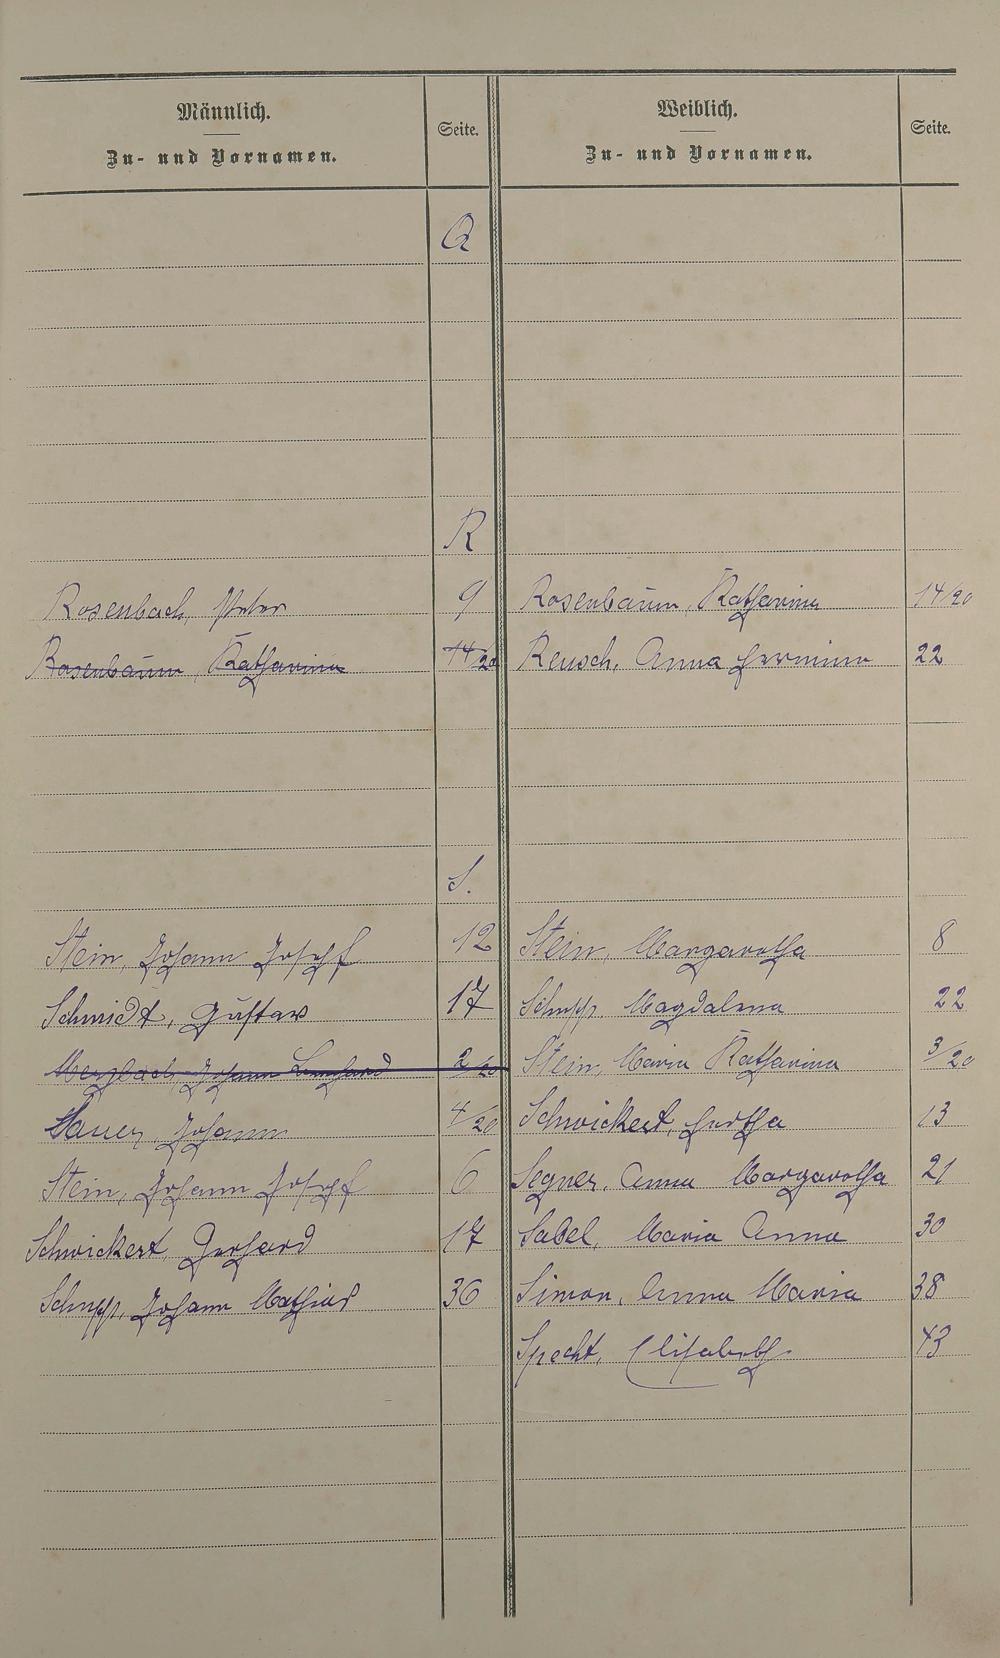 Männlich. Weiblich.
Zu- und Vornamen. Seite. Zu- und Vornamen. Seite.
Q
R
Rosenbach, Peter 9 Rosenbaum, Katharina 14/20
Rosenbaum, Katharina 14/20 Reusch, Anna Hermine 22
S.
Stein, Johann Joseph 12 Stein, Margaretha 8
Schmidt, Gustav 17 Schupp Magdalena 22
Merzbach, Johann Leonhard 2/20 Stein, Maria Katharina 3/20
Sauer, Johann 4/20 Schwickert, Hertha 13
Stein, Johann Joseph 6 Segner, Anna Margaretha 21
Schwickert, Gerhard 17 Sabel, Maria Anna 30
Schupp, Johann Mathias 36 Simon, Anna Maria 38
Specht, Elisabeth 43